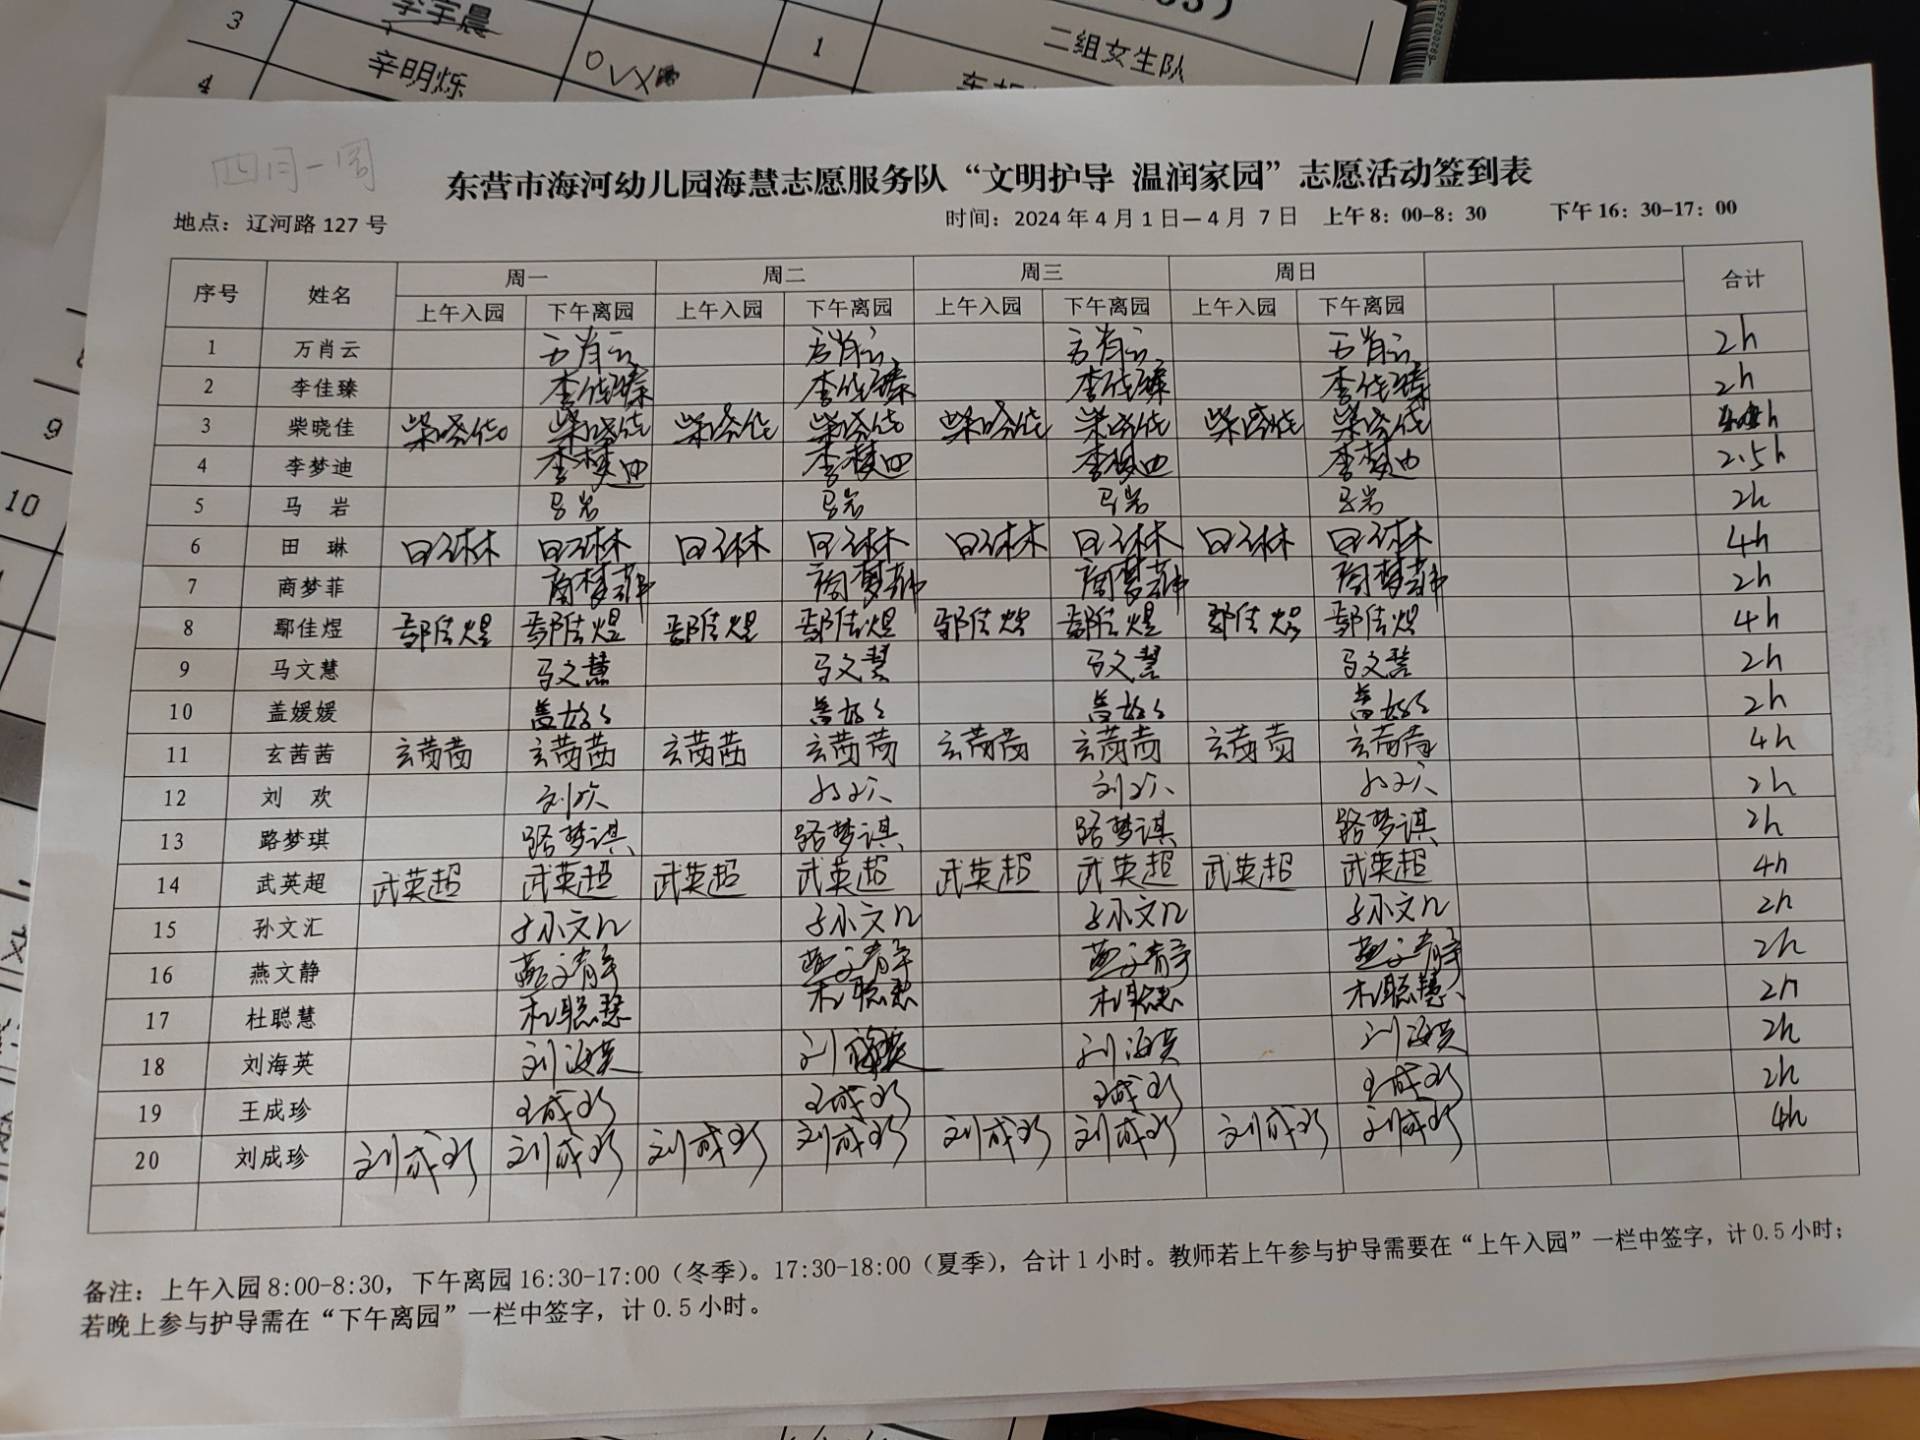 3 李宇晨 1 二组女生队
4 辛明烁
9
10
四月一周
东营市海河幼儿园海慧志愿服务队“文明护导 温润家园”志愿活动签到表
地点：辽河路 127 号 时间：2024 年 4 月 1 日—4 月 7 日 上午 8：00-8：30 下午 16：30-17：00
序号 姓名 周一 周二 周三 周日 合计
上午入园 下午离园 上午入园 下午离园 上午入园 下午离园 上午入园 下午离园
1 万肖云 万肖云 万肖云 万肖云 万肖云 2h
2 李佳臻 李佳臻 李佳臻 李佳臻 李佳臻 2h
3 柴晓佳 柴晓佳 柴晓佳 柴晓佳 柴晓佳 柴晓佳 柴晓佳 柴晓佳 柴晓佳
4 李梦迪 李梦迪 李梦迪 李梦迪 李梦迪 2.5h
5 马 岩 马岩 马岩 马岩 马岩 2h
6 田 琳 田琳 田琳 田琳 田琳 田琳 田琳 田琳 田琳 4h
7 商梦菲 商梦菲 商梦菲 商梦菲 商梦菲 2h
8 鄢佳煜 鄢佳煜 鄢佳煜 鄢佳煜 鄢佳煜 鄢佳煜 鄢佳煜 鄢佳煜 鄢佳煜 4h
9 马文慧 马文慧 马文慧 马文慧 马文慧 2h
10 盖媛媛 盖媛媛 盖媛媛 盖媛媛 盖媛媛 2h
11 玄茜茜 玄茜茜 玄茜茜 玄茜茜 玄茜茜 玄茜茜 玄茜茜 玄茜茜 玄茜茜 4h
12 刘 欢 刘欢 刘欢 刘欢 刘欢 2h
13 路梦琪 路梦琪 路梦琪 路梦琪 路梦琪 2h
14 武英超 武英超 武英超 武英超 武英超 武英超 武英超 武英超 武英超 4h
15 孙文汇 孙文汇 孙文汇 孙文汇 孙文汇 2h
16 燕文静 燕文静 燕文静 燕文静 燕文静 2h
17 杜聪慧 杜聪慧 杜聪慧 杜聪慧 杜聪慧 2h
18 刘海英 刘海英 刘海英 刘海英 刘海英 2h
19 王成珍 王成珍 王成珍 王成珍 王成珍 2h
20 刘成珍 刘成珍 刘成珍 刘成珍 刘成珍 刘成珍 刘成珍 刘成珍 刘成珍 4h
备注：上午入园 8:00-8:30，下午离园 16:30-17:00（冬季）。17:30-18:00（夏季），合计 1 小时。教师若上午参与护导需要在“上午入园”一栏中签字，计 0.5 小时；
若晚上参与护导需在“下午离园”一栏中签字，计 0.5 小时。